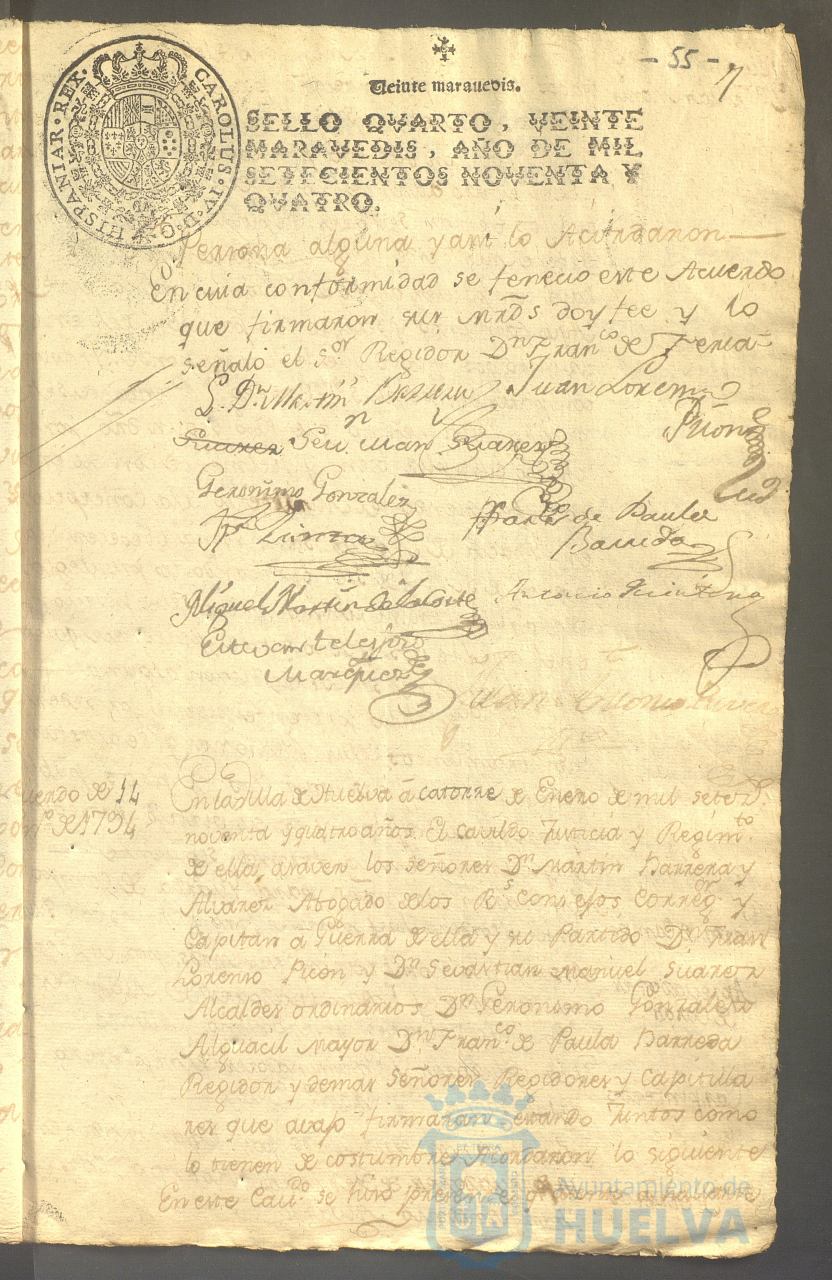 - 55 - 7
Veinte maravedis.
CAROLUS·IV·D·G·HISPANIAR·REX·
SELLO QVARTO, VEINTE
MARAVEDIS, AÑO DE MIL
SETECIENTOS NOVENTA Y
QVATRO.
Persona alguna y asi lo Acordaron
En cuia conformidad se fenecio este Acuerdo
que firmaron sus mrds doy fee y lo
señaló el Sor Regidor Dn Franco de Feria
L. Dn Martin Barrera Juan Lorenzo
Picon
Suarez Sevn Man Suarez
Geronimo Gonzalez
Franco de Paula
Barreda
Miguel Martin de la Corte Antonio Quintero
Estevan telesforo
Marquez
Juan Antonio
14
de 1794
En la villa de Huelva á catorze de Enero de mil setes
noventa y quatro años. El Cavildo Justicia y Regimto
de ella, asaver los señores Dn Martin Barrera y
Alvarez Abogado de los Rs Consejos Corregor y
Capitan á Guerra de ella y su Partido Dn Juan
Lorenzo Picon y Dn Sevastian Manuel Suarez
Alcaldes ordinarios Dn Geronimo Gonzalez
Alguacil mayor Dn Franco de Paula Barreda
Regidor y demas Señores Regidores y Capitula
res que avajo firmaran estando Juntos como
lo tienen de costumbre Acordaron lo siguiente
En este Cavdo se hizo presente
Ayuntamiento de
HUELVA